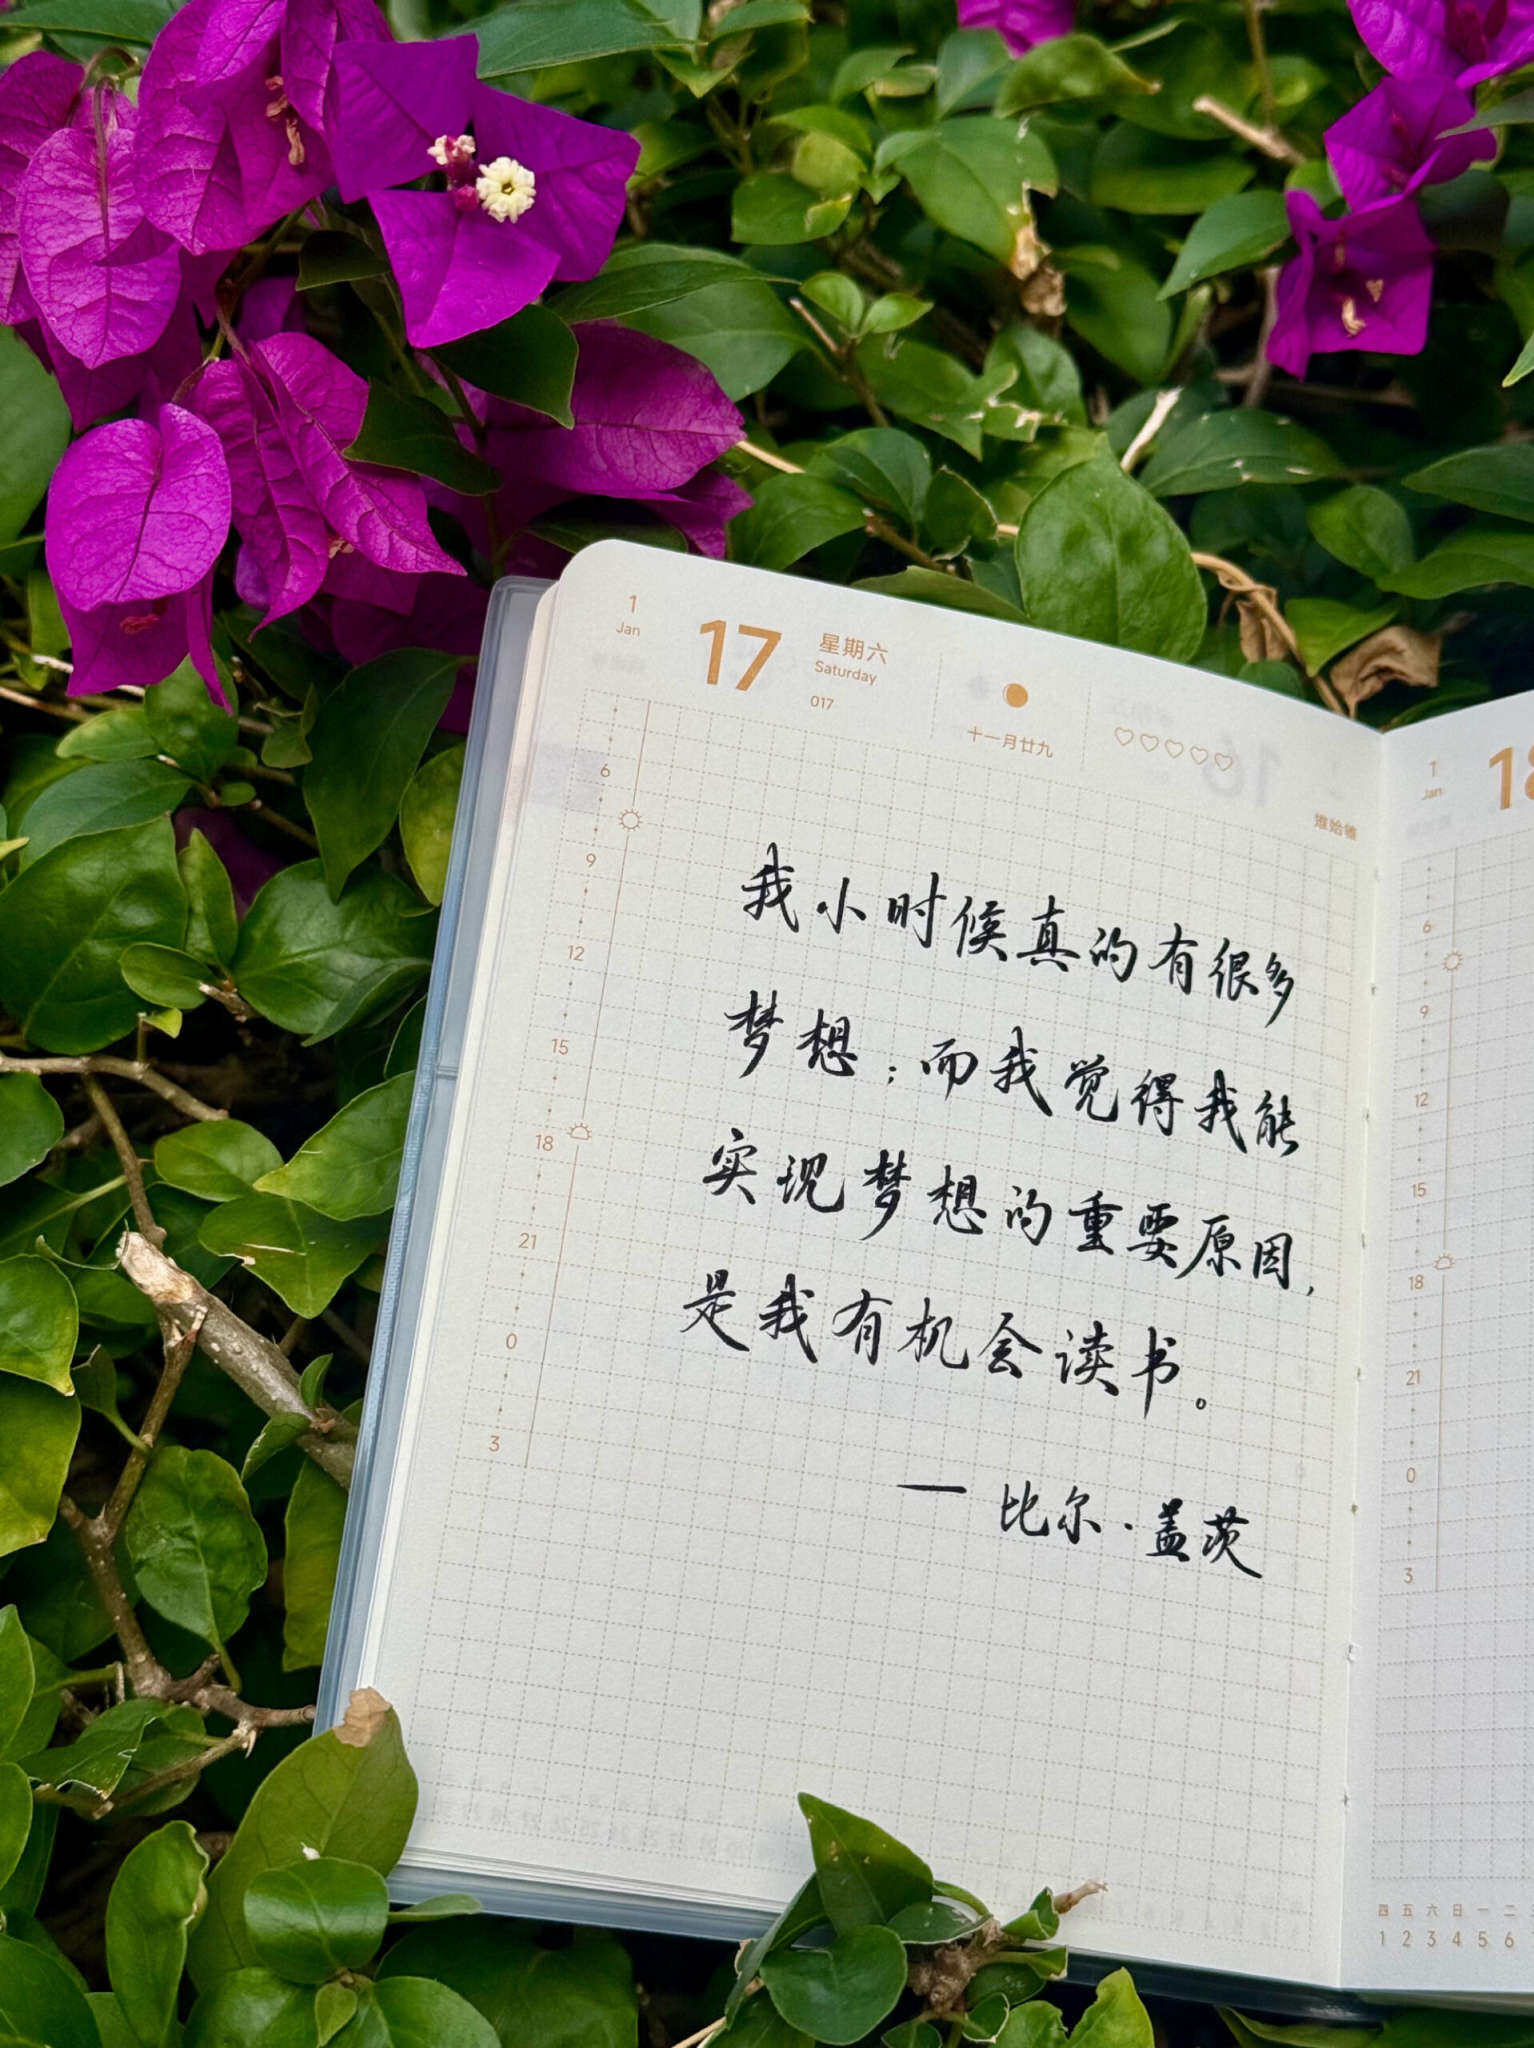 1
Jan
17
星期六
Saturday
017
十一月廿九
雉始雊
6
9
12
15
18
21
0
3
我小时候真的有很多
梦想；而我觉得我能
实现梦想的重要原因，
是我有机会读书。
一 比尔·盖茨
1
Jan
18
6
9
12
15
18
21
0
3
四 五 六 日 一 二
1 2 3 4 5 6